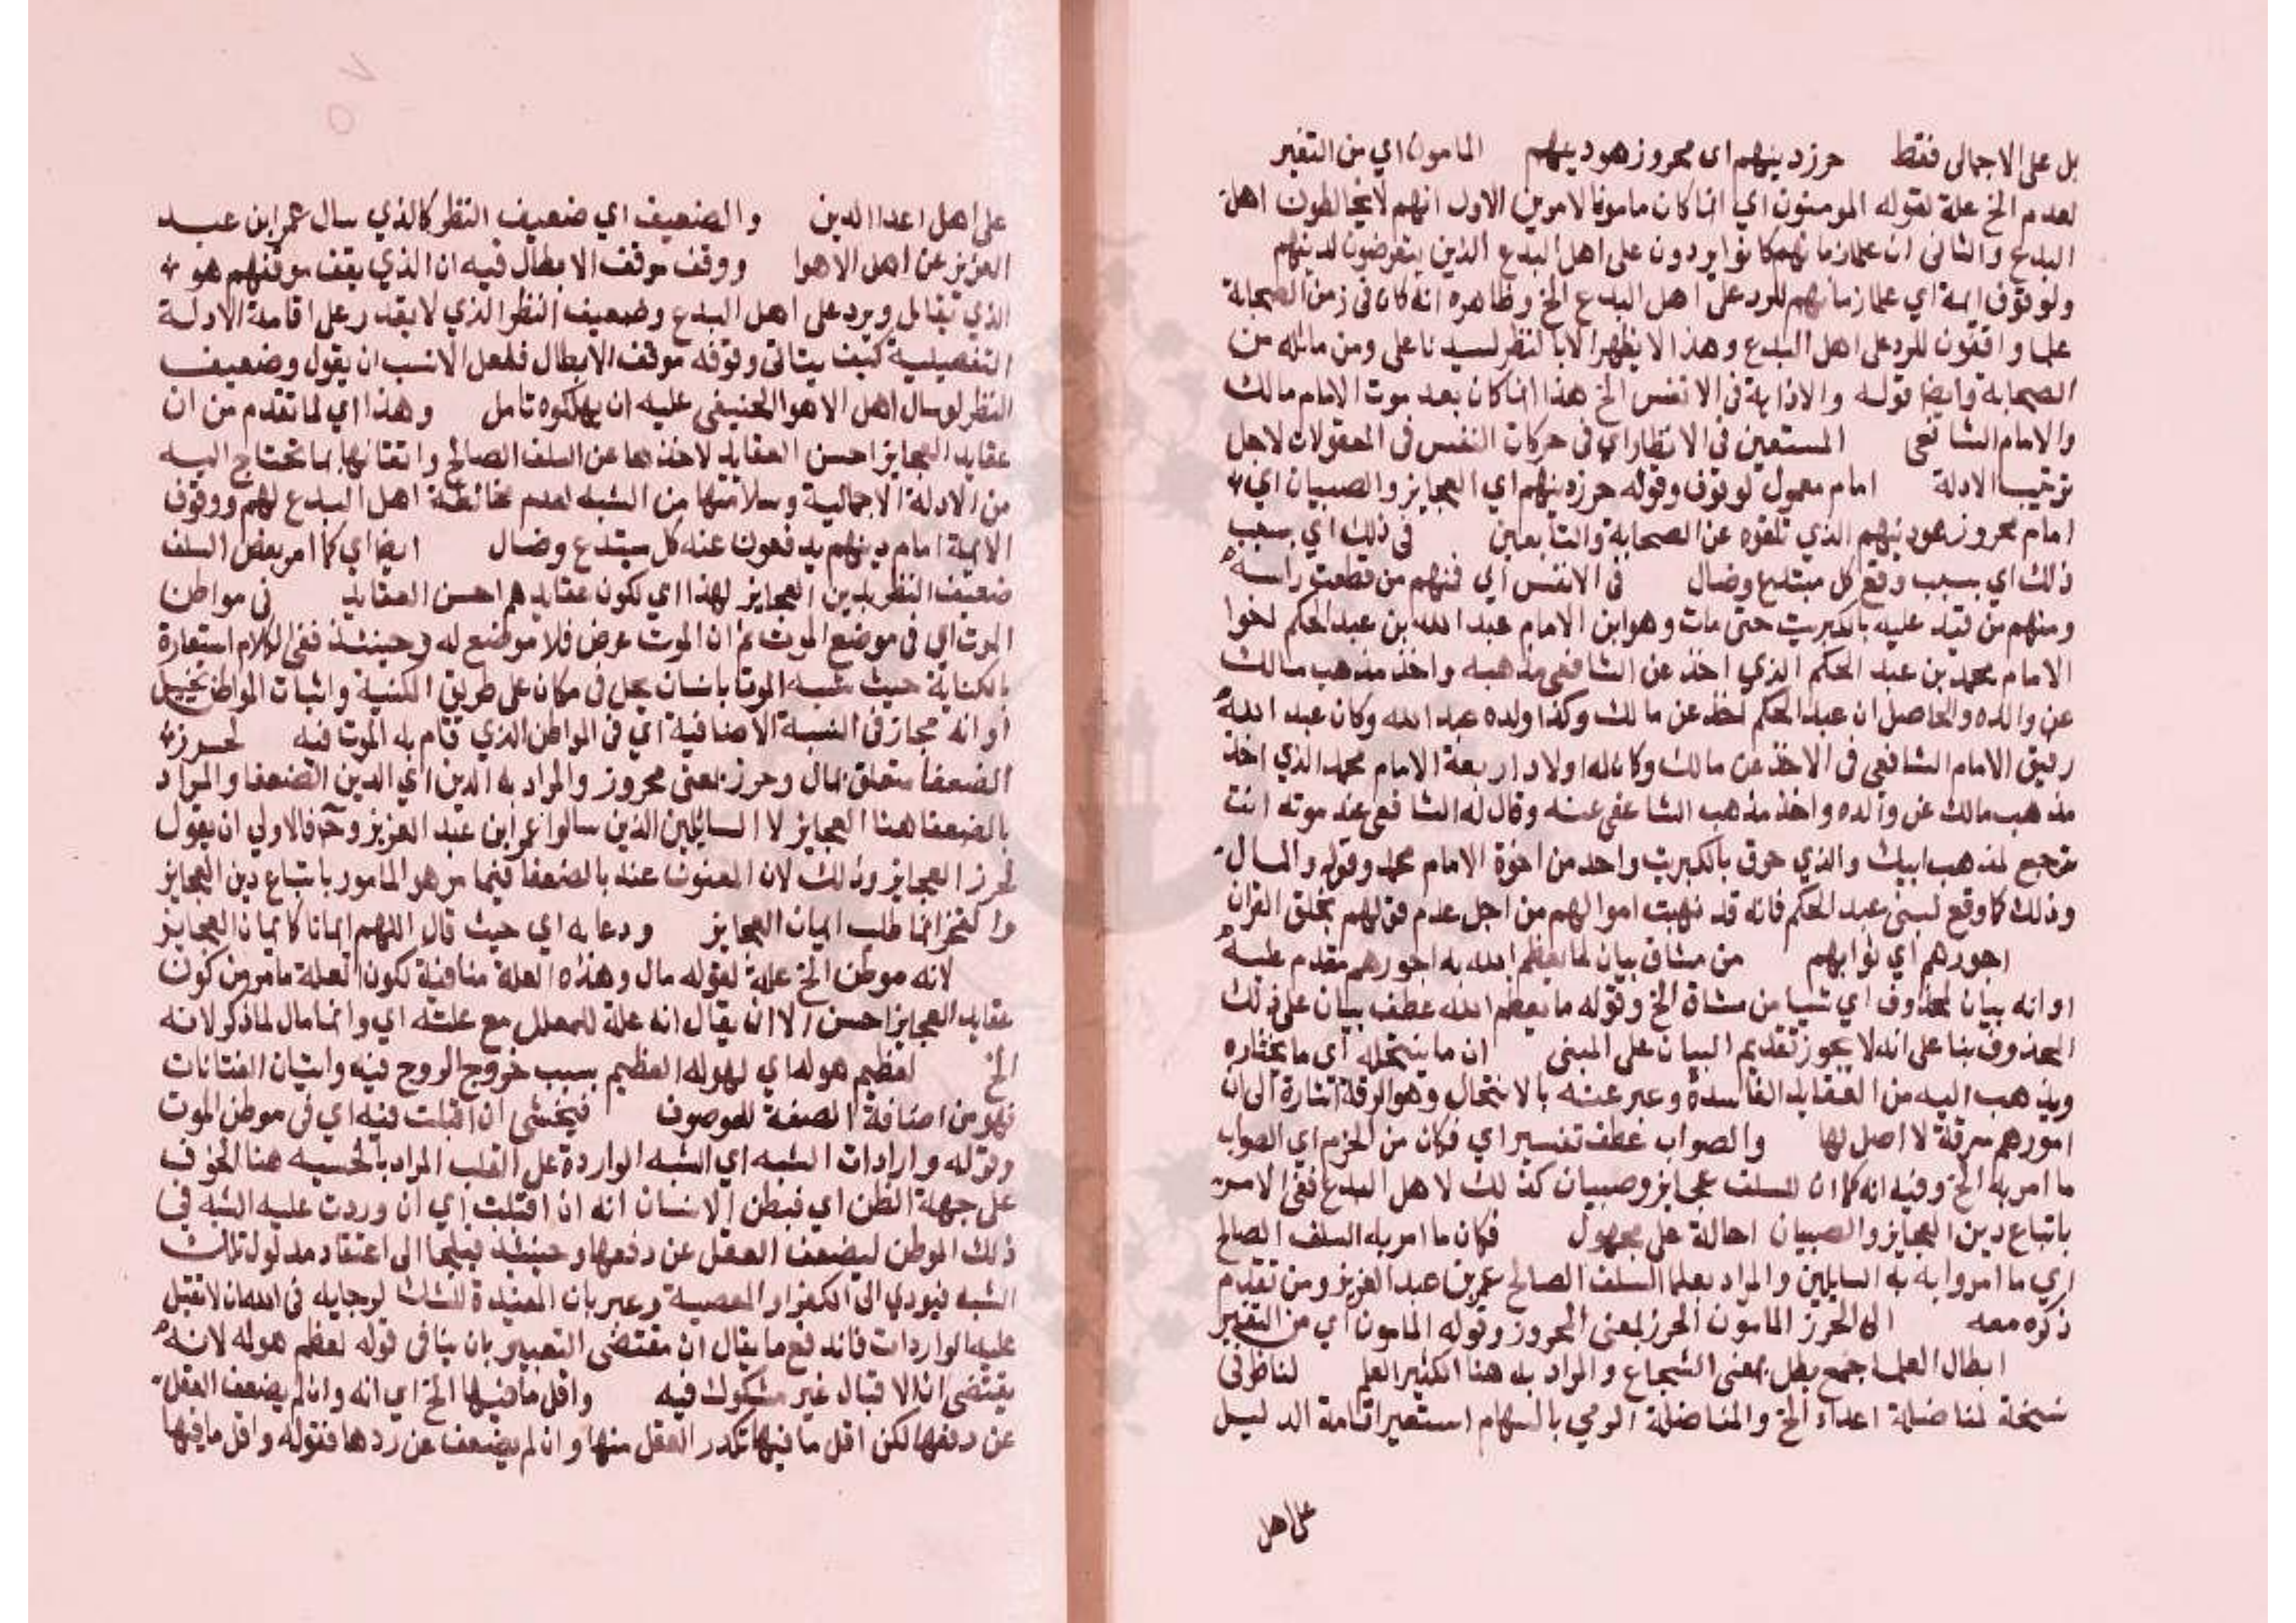 بل على الاجمالى فقط حرز دينهم اى محروز هو دينهم المامون اي من التغير
لعدم الخ علة لقوله المومنون اي انما كان مامونا لامرين الاول انهم لا يخالطون اهل
البدع والثانى ان علما زمانهم كانوا يردون على اهل البدع الذين يتعرضون لدينهم
ولوقوف ايمة اي علما زمانهم للرد على اهل البدع الخ وظاهره انه كان فى زمن الصحابة
علما واقفون للرد على اهل البدع وهذا لا يظهر الا بالنظر لسيدنا على ومن ماثله من
الصحابة وايضا قوله والاذاية فى الانفس الخ هذا انما كان بعد موت الامام مالك
والامام الشافعى المستعين فى الانظار اي فى حركات النفس فى المعقولات لاجل
ترتيب الادلة امام معمول لوقوف وقوله حرز دينهم اي العجايز والصبيان اي
امام محروز هو دينهم الذي تلقوه عن الصحابة والتابعين فى ذلك اي بسبب
ذلك اي بسبب دفع كل مبتدع وضال فى الانفس اي فمنهم من قطعت راسه
ومنهم من قيد عليه بالكبريت حتى مات وهو ابن الامام عبد الله بن عبد الحكم اخوا
الامام محمد بن عبد الحكم الذي اخذ عن الشافعى مذهبه واخذ مذهب مالك
عن والده والحاصل ان عبد الحكم اخذ عن مالك وكذا ولده عبد الله وكان عبد الله
رفيق الامام الشافعى فى الاخذ عن مالك وكان له اولاد اربعة الامام محمد الذي اخذ
مذهب مالك عن والده واخذ مذهب الشافعى عنه وقال له الشافعى عند موته انت
ترجع لمذهب ابيك والذي حرق بالكبريت واحد من اخوة الامام محمد وقوله والمال
وذلك كما وقع لبنى عبد الحكم فانه قد نهبت اموالهم من اجل عدم قولهم بخلق القران
اجورهم اي ثوابهم من مشاق بيان لما يعظم الله به اجورهم مقدم عليه
او انه بيان لمحذوف اي شيا من مشاق الخ وقوله ما يعظم الله عطف بيان على ذلك
المحذوف بنا على انه لا يجوز تقديم البيان على المبين ان ما ينتحله اي ما يختاره
ويذهب اليه من العقايد الفاسدة وعبر عنه بالانتحال وهو السرقة اشارة الى ان
امورهم سرقة لا اصل لها والصواب عطف تفسير اي فكان من الحزم اي الصواب
ما امر به الخ وفيه انه كما ان للسلف عجايز وصبيان كذلك لاهل البدع ففى الامر
باتباع دين العجايز والصبيان احالة على مجهول فكان ما امر به السلف الصالح
اي ما امروا به السايلين والمراد بعلما السلف الصالح عمر بن عبد العزيز ومن تقدم
ذكره معه الى الحرز المامون الحرز بمعنى المحروز وقوله المامون اي من التغيير
ابطال العلما جمع بطل بمعنى الشجاع والمراد به هنا الكثير العلم لناظر فى
نسخة لمناضلة اعداء الخ والمناضلة الرمي بالسهام استعير اقامة الدليل
على اهل
على اهل اعدا الدين والضعيف اي ضعيف النظر كالذي سال عمر ابن عبد
العزيز عن اهل الاهوا ووقف موقف الابطال فيه ان الذي يقف موقفهم هو
الذي يقابل ويرد على اهل البدع وضعيف النظر الذي لا يقدر على اقامة الادلة
التفصيلية كيف يتاتى وقوفه موقف الابطال فلعل الانسب ان يقول وضعيف
النظر لو سال اهل الاهوا لخيف عليه ان يهلكوه تامل وهذا اي لما تقدم من ان
عقايد العجايز احسن العقايد لاخذها عن السلف الصالح واتقانها بما تحتاج اليه
من الادلة الاجمالية وسلامتها من الشبه لعدم مخالطة اهل البدع لهم ووقوف
الايمة امام دينهم يدفعون عنه كل مبتدع وضال ايضا اي كما امر بعض السلف
ضعيف النظر بدين العجايز لهذا اي لكون عقايدهم احسن العقايد فى مواطن
الموت اي فى موضع الموت ثم ان الموت عرض فلا موضع له وحينئذ ففى الكلام استعارة
بالكناية حيث شبه الموت بانسان يحل فى مكان على طريق المكنية واثبات المواطن تخييل
او انه مجاز فى النسبة الاضافية اي فى المواطن الذي قام به الموت فيه لحرز
الضعفا متعلق بمال وحرز بمعنى محروز والمراد به الدين اي الدين الضعفا والمراد
بالضعفا هنا العجايز لا السايلين الذين سالوا عمر ابن عبد العزيز وح فالاولي ان يقول
لحرز العجايز وذلك لان المعنون عنه بالضعفا فيما مر هو المامور باتباع دين العجايز
والفخر انما طلب ايمان العجايز ودعا به اي حيث قال اللهم ايمانا كايمان العجايز
لانه موطن الخ علة لقوله مال وهذه العلة منافية لكون العلة ما مر من كون
عقايد العجايز احسن الا ان يقال انه علة للمعلل مع علته اي وانما مال لما ذكر لانه
الخ لعظيم هوله اي لهوله العظيم بسبب خروج الروح فيه واتيان الفتانات
فهو من اضافة الصفة للموصوف فيخشى ان اقبلت فيه اي فى موطن الموت
وقوله وارادات الشبه اي الشبه الواردة على القلب المراد بالخشيه هنا الخوف
على جهة الظن اي فيظن الانسان انه ان اقبلت اي ان وردت عليه الشبه فى
ذلك الموطن ليضعف العقل عن دفعها وحينئذ فيلجا الى اعتقاد مدلول تلك
الشبه فيودي الى الكفر او المعصية وعبر بان المفيدة للشك لرجايه فى الله ان لا تقبل
عليه الواردات فاندفع ما يقال ان مقتضى التعبير بان ينافى قوله لعظم هوله لانه
يقتضى ان الاقبال غير مشكوك فيه واقل ما فيها الخ اي انه وان لم يضعف العقل
عن دفعها لكن اقل ما فيها تكدر العقل منها وان لم يضعف عن ردها فقوله واقل ما فيها